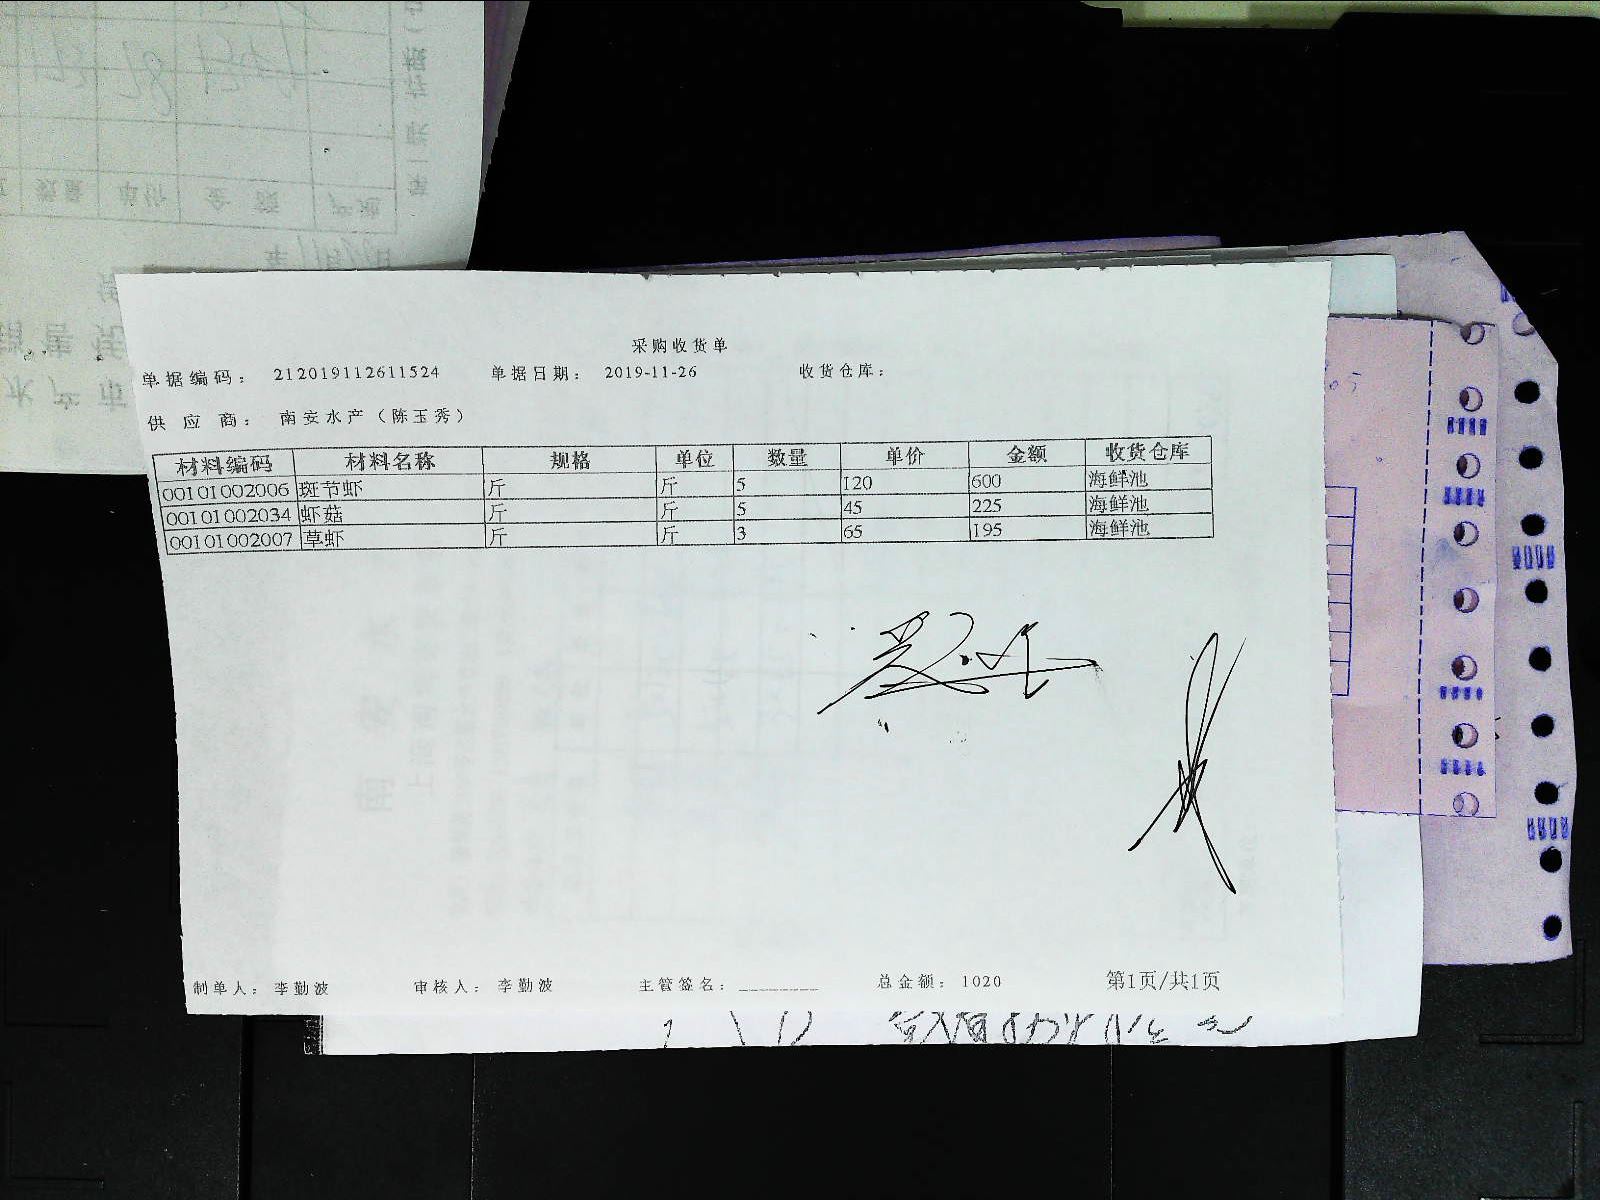 采购收货单
单据编码: 212019112611524 单据日期: 2019-11-26 收货仓库:
供应商: 南安水产(陈玉秀)
材料编码 材料名称 规格 单位 数量 单价 金额 收货仓库
00101002006 斑节虾 斤 斤 5 120 600 海鲜池
00101002034 虾菇 斤 斤 5 45 225 海鲜池
00101002007 草虾 斤 斤 3 65 195 海鲜池
制单人: 李勤波 审核人: 李勤波 主管签名: 总金额: 1020 第1页/共1页